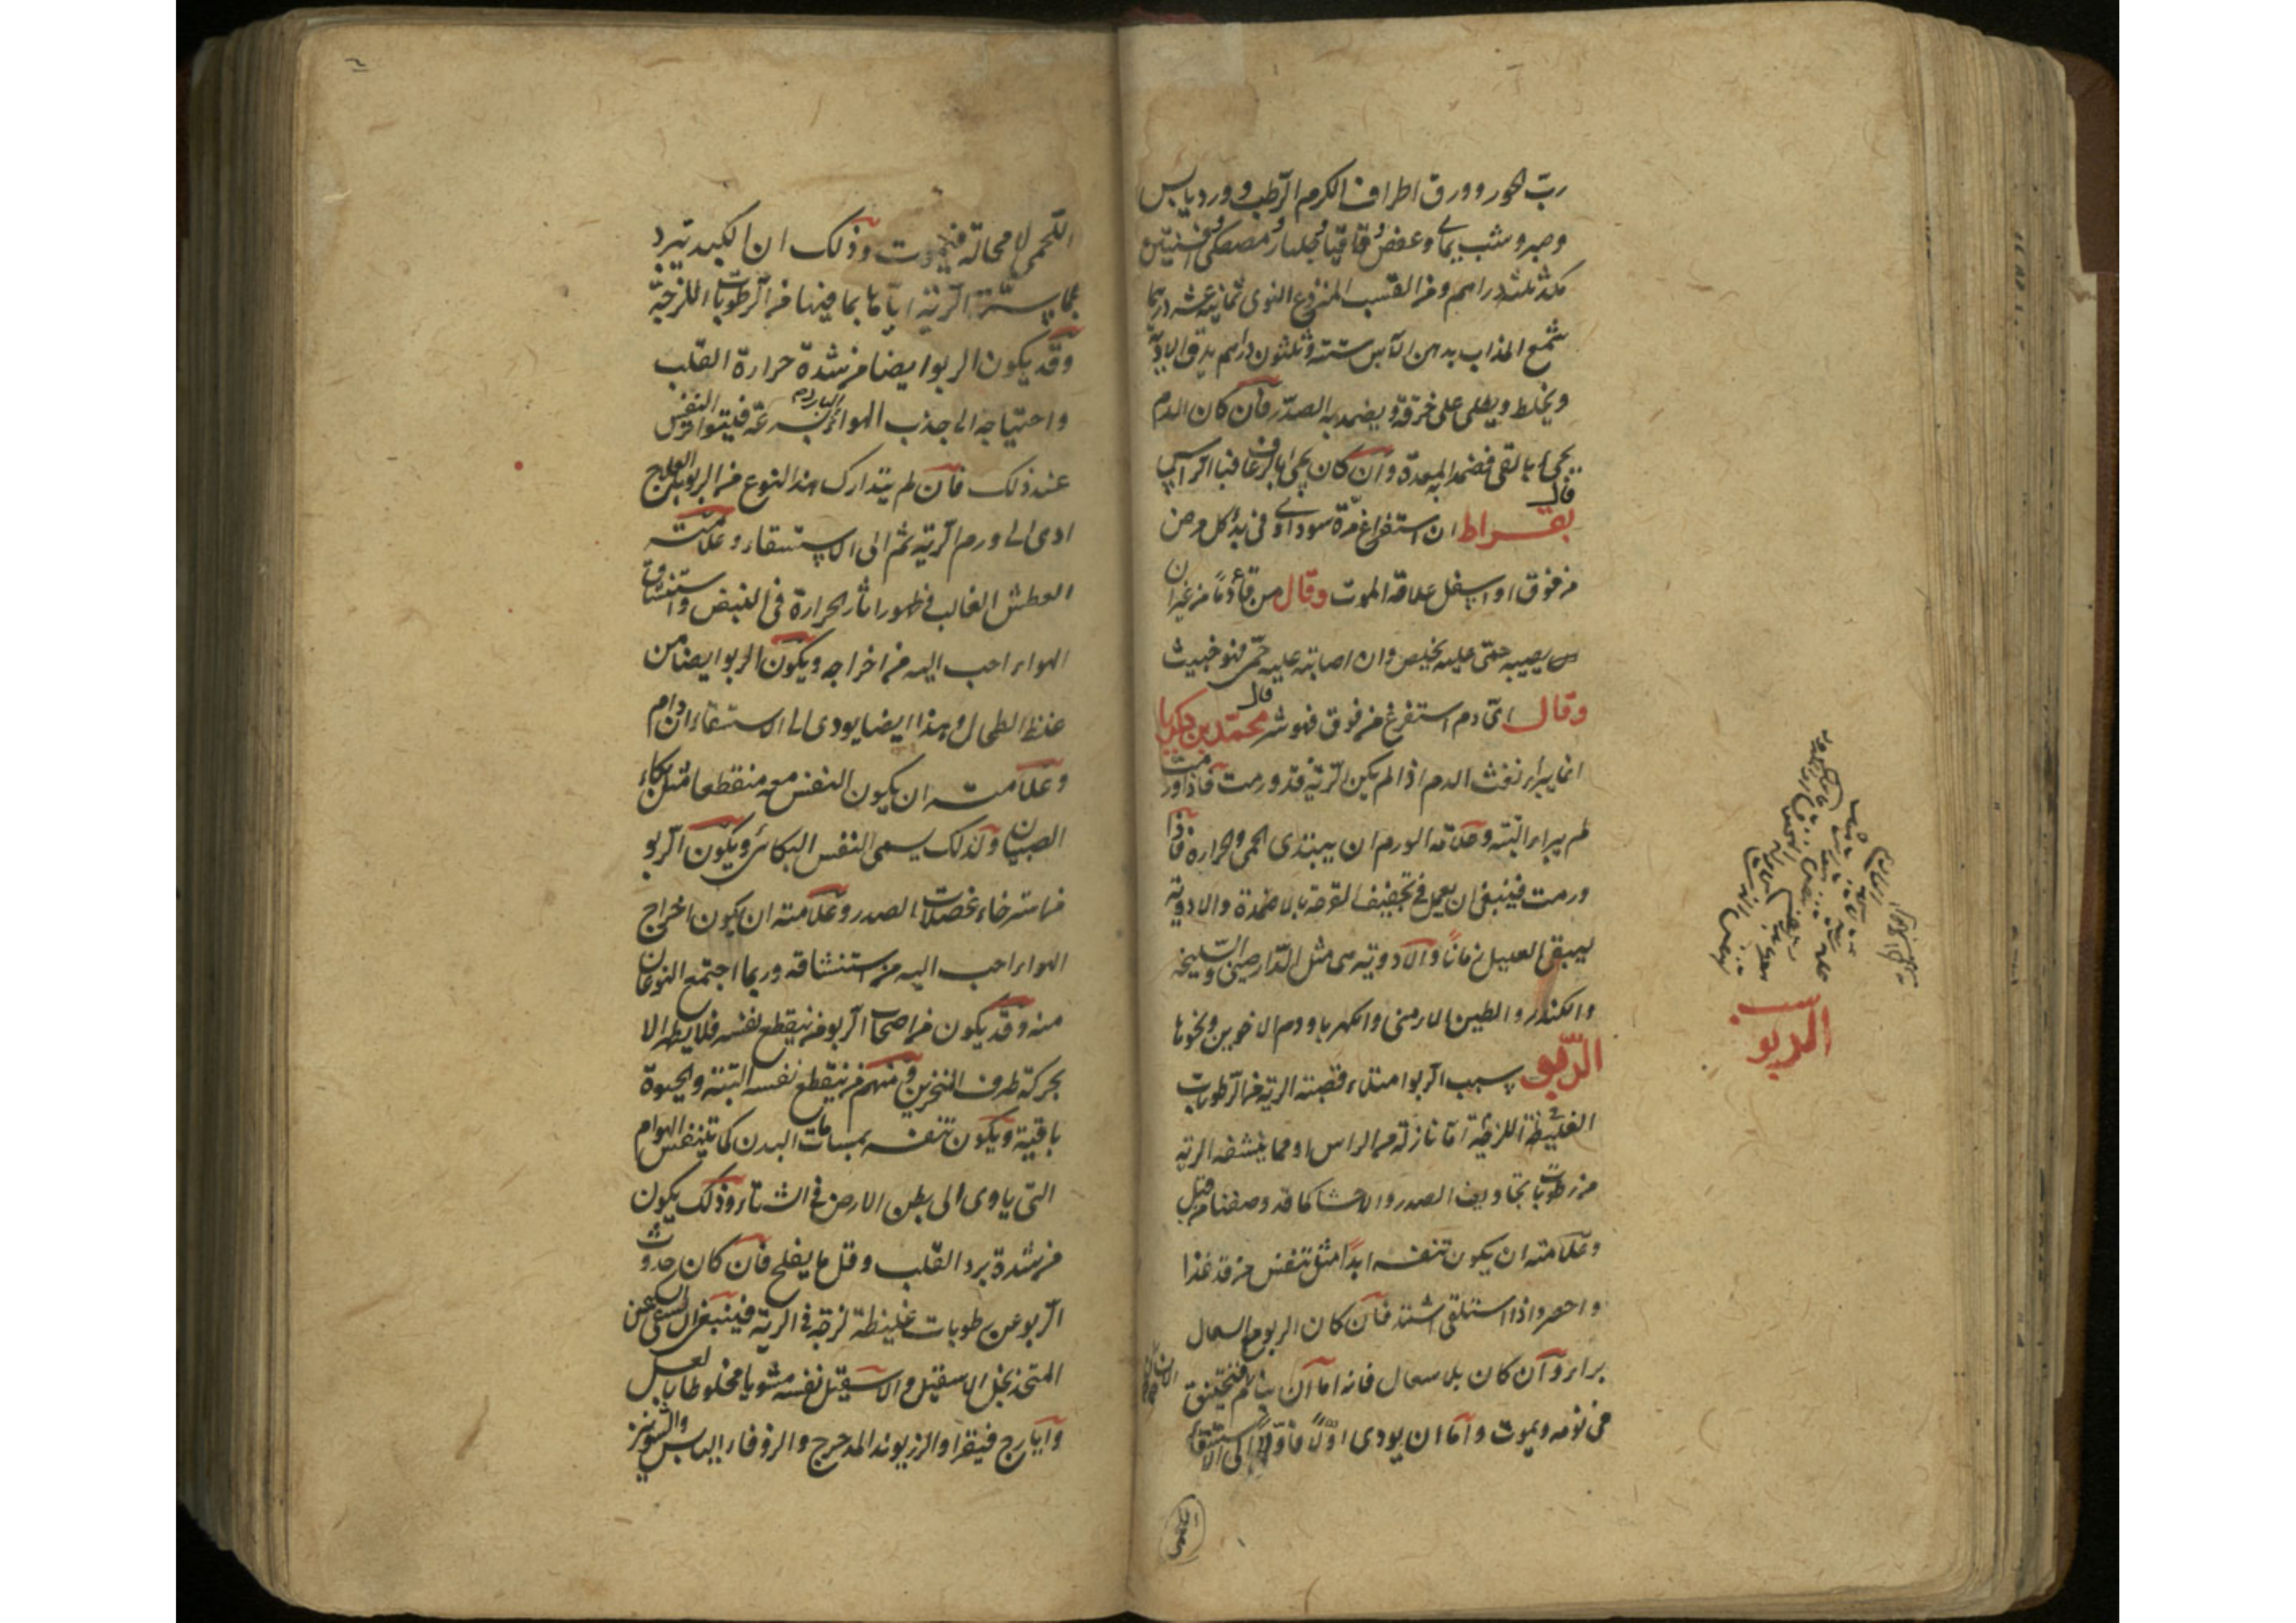 ربّ الحور وورق اطراف الكرم الرطب وورد يابس
وصبر وشب يمانى وعفص واقاقيا وجلنار ومصطكى وافسنتين
مكد ثلثه دراهم ومن القسب المنزوع النوى ثمانية عشر درهما
شمع المذاب بدهن الآس ستة وثلثون دراهم يدق الادوية
ويخلط ويطلى على خرقة ويضمد به الصدر فان كان الدم
يجئ بالقئ فضمد به المعدة وان كان يجئ بالرعاف فاليا الراس قال
بقراط ان استفراغ مرة سوداوى فى بدؤ كل مرض
من فوق او اسفل علامة الموت وقال من قاء دمًا من غير ان
يصيبه حمّى عليه يخلص وان اصابته عليه حمّى فهو خبيث
وقال اىّ دم استفرغ من فوق فهو شر قال محمّد بن زكريا
انما يبراء نفث الدم اذا لم يكن الرئة قد ورمت فاذا ورمت
لم يبراء البتّه وعلامة الورم ان يبتدى الحمى والحرارة فاذا
ورمت فينبغى ان يعمل فى تجفيف القرحة بالاضمدة والادوية
ليبقى العليل زمانًا والادوية هى مثل الدارصينى والسليخة
والكندر والطين الارمنى والكهربا ودم الاخوين ونحوها
الرّبو سبب الربو امتلاء قصبة الرئة من الرطوبات
الغليظة اللزجة امّا نازلة من الراس او مما ينشفه الرئة
من رطوبات تجاويف الصدر والاحشا كما قد وصفنا من قبل
وعلامته ان يكون تنفسه ابدًا مثل تنفس من قد غذا
واحصر واذا استلقى اشتد فان كان الربو مع السعال
براء وان كان بلا سعال فانه اما ان ينام فيختنق
فى نومه ويموت وامّا ان يودى اوّلًا فاوّلًا الى الاستسقاء
الربو
اللحمى لا محالة فيموت وذلك ان الكبد تبرد
بمايسترة الرئة اياها بما فيها من الرطوبات اللزجة
وقد يكون الربو ايضا من شدة حرارة القلب
واحتياجه الى جذب الهواء البارد بسرعة فيتواتر النفس
عند ذلك فان لم يتدارك هذا النوع من الربو بالعلاج
ادى الى ورم الرئة ثم الى الاستسقاء وعلامته
العطش الغالب وظهور اثار الحرارة فى النبض واستنشاق
الهواء احب اليه من اخراجه ويكون الربو ايضا من
غلظ الطحال وهذا ايضا يودى الى الاستسقاء ان دام
وعلامته ان يكون النفس معه منقطعا مثل بكاء
الصبيان ولذلك يسمى النفس البكائى ويكون الربو
من استرخاء عضلات الصدر وعلامته ان يكون اخراج
الهواء احب اليه من استنشاقه وربما اجتمع النوعان
منه وقد يكون من اصحاب الربو من ينقطع نفسه فلا يظهر الا
بحركة طرف المنخرين ومنهم من ينقطع نفسه البتة والحيوة
باقية ويكون تنفسه بمسامات البدن كما يتنفس الهوام
التى ياوى الى بطن الارض فى الشتاء وذلك يكون
من شدة برد القلب وقل ما يفلح فان كان حدوث
الربو عن رطوبات غليظة لزجة فى الرئة فينبغى ان يسقى من
المتخذ بخل الاسقيل والاسقيل نفسه مشويا مخلوطا بالعسل
وايارج فيقرا والزريوند المدحرج والزوفاء اليابس والشونيز